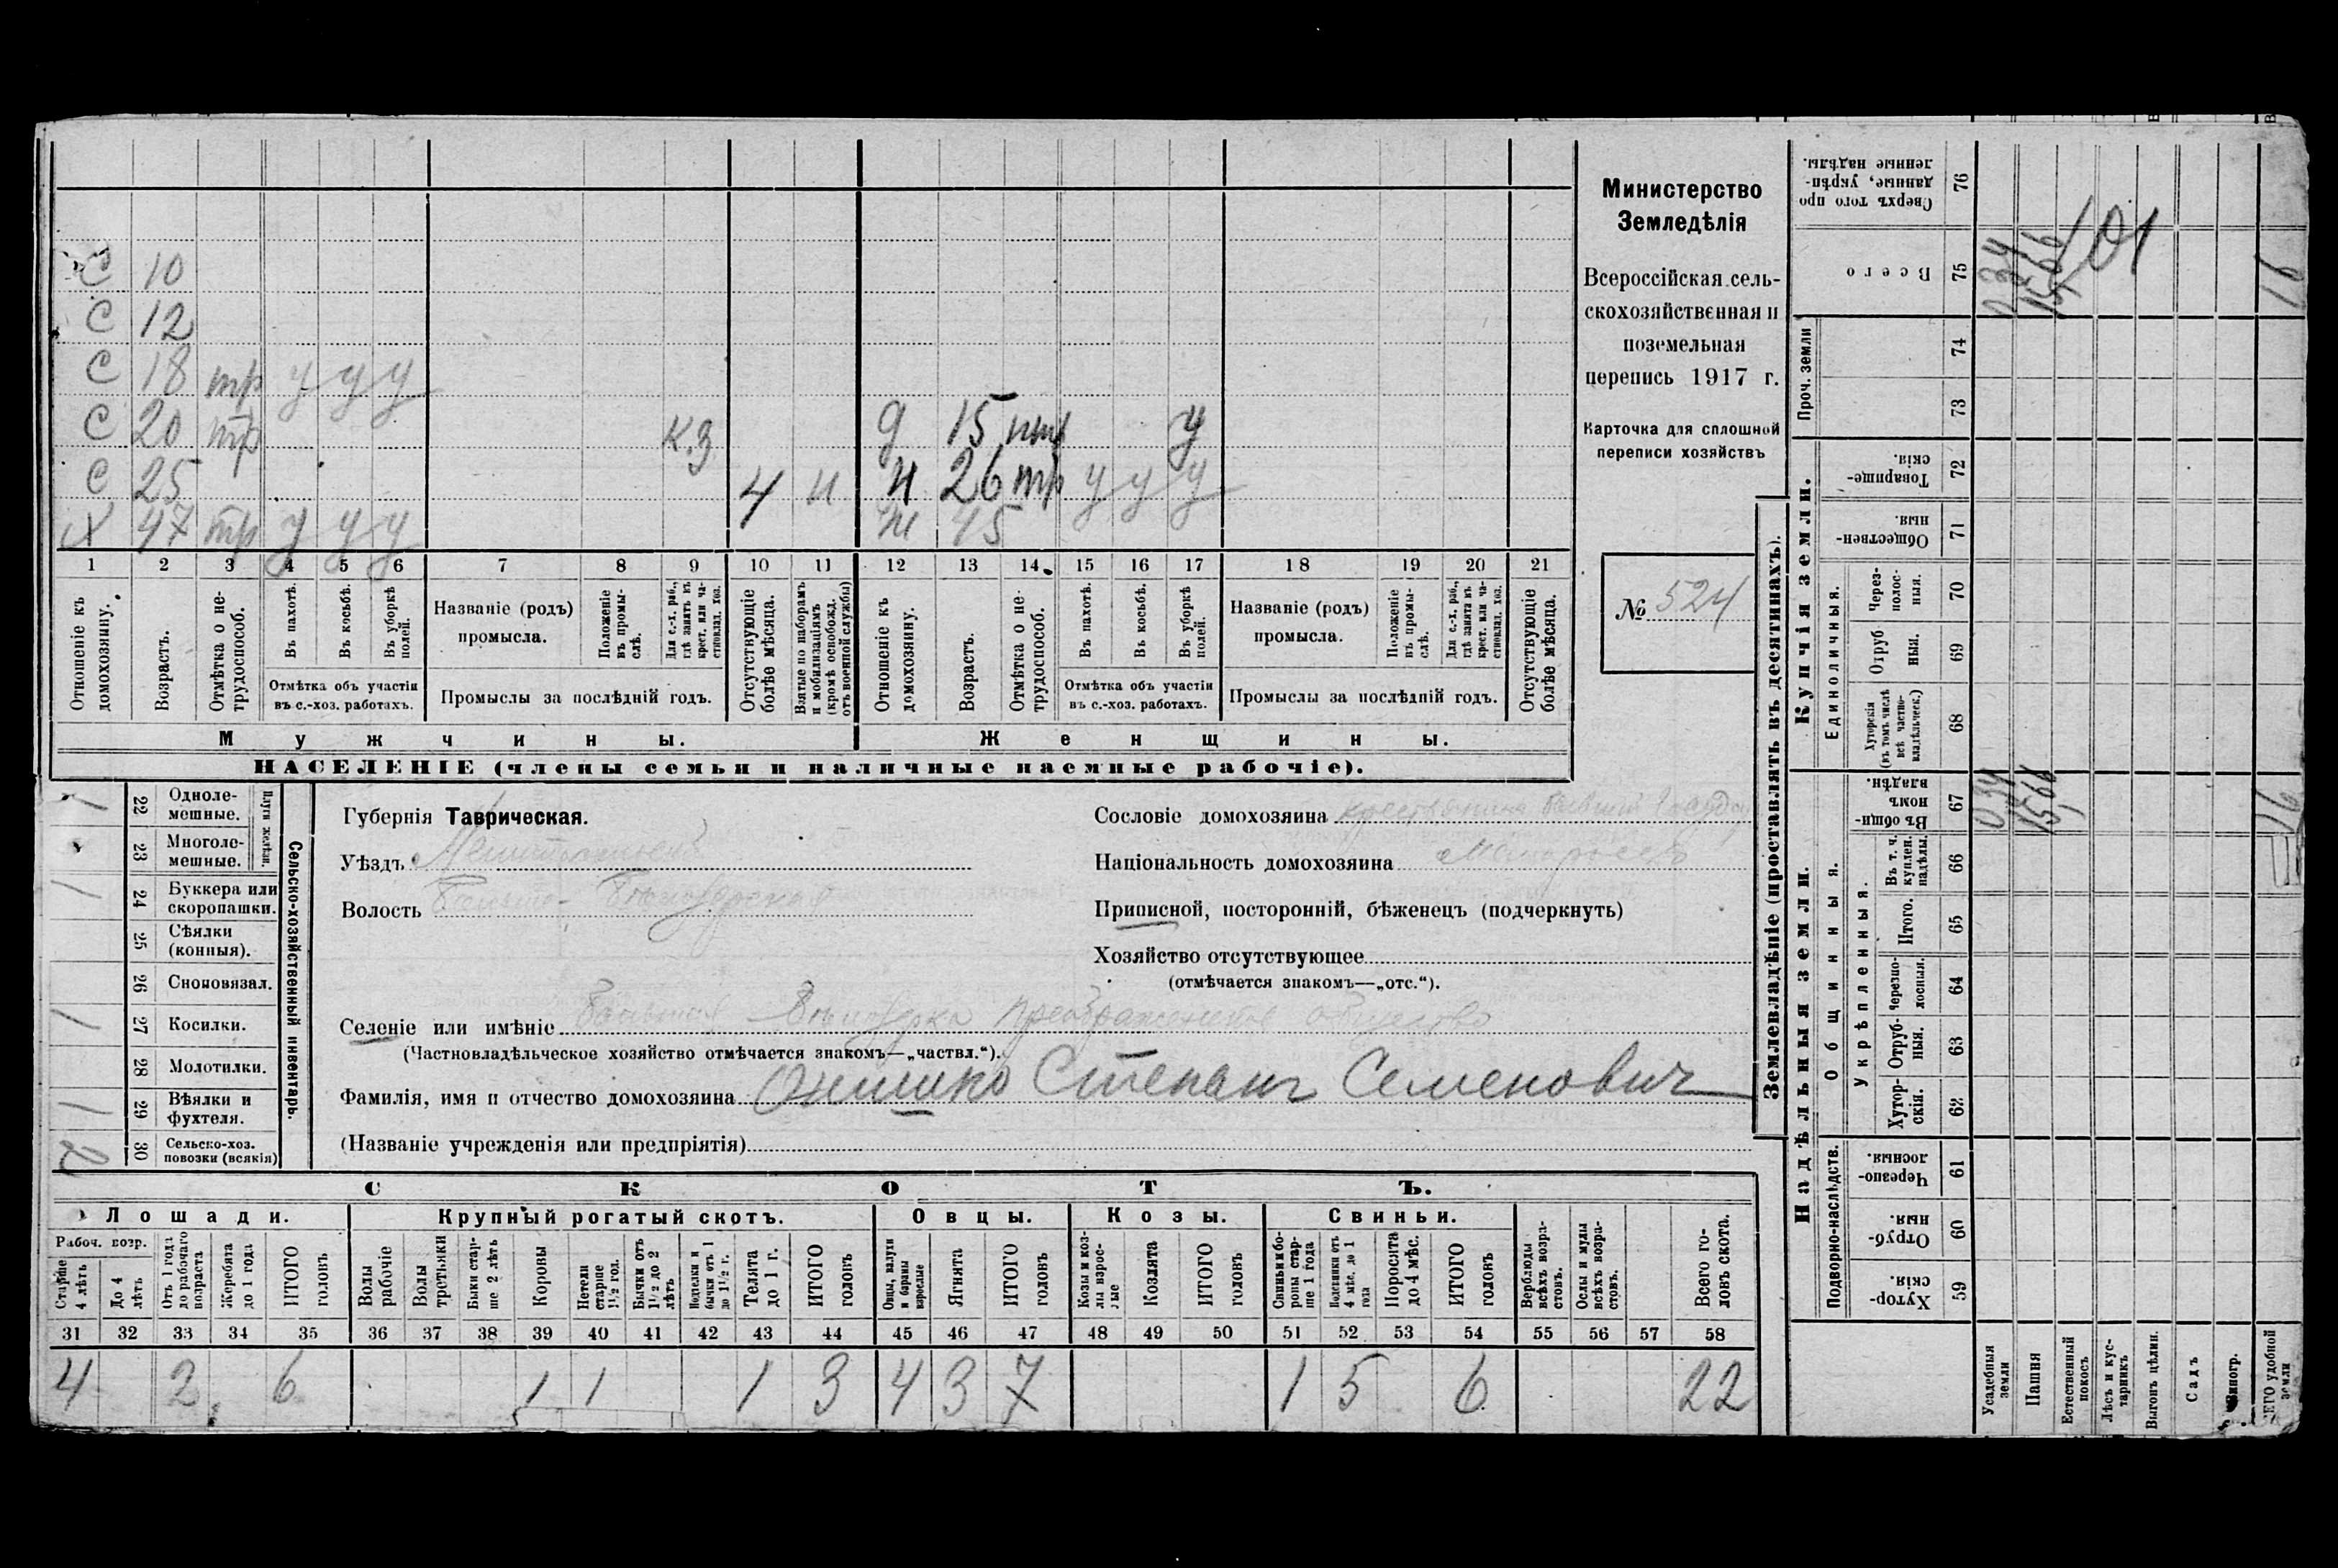 С 10
С 12
С 18 тр у у у
С 20 тр к.з д 15 у
С 25 4 н н 26 тр у у у
х 47 тр у у у ж 45
1 2 3 4 5 6 7 8 9 10 11 12 13 14 15 16 17 18 19 20 21
Отношеніе къ домохозяину.
Возрастъ.
Отмѣтка о нетрудоспособ.
Въ пахотѣ.
Въ косьбѣ.
Въ уборкѣ полей.
Отмѣтка объ участіи въ с.-хоз. работахъ.
Названіе (родъ) промысла.
Положеніе въ промыслѣ.
Для с.-х. раб., гдѣ занятъ въ крест. или частновлад. хоз.
Промыслы за послѣдній годъ.
Отсутствующіе болѣе мѣсяца.
Взятые по наборамъ и мобилизаціямъ (кромѣ освобожд. отъ военной службы)
Отношеніе къ домохозяину.
Возрастъ.
Отмѣтка о нетрудоспособ.
Въ пахотѣ.
Въ косьбѣ.
Въ уборкѣ полей.
Отмѣтка объ участіи въ с.-хоз. работахъ.
Названіе (родъ) промысла.
Положеніе въ промыслѣ.
Для с.-х. раб., гдѣ занята въ крест. или частновлад. хоз.
Промыслы за послѣдній годъ.
Отсутствующіе болѣе мѣсяца.
Мужчины.
Женщины.
НАСЕЛЕНІЕ (члены семьи и наличные наемные рабочіе).
Министерство
Земледѣлія
Всероссійская сель-
скохозяйственная и
поземельная
перепись 1917 г.
Карточка для сплошной
переписи хозяйствъ
№ 524
Сельско-хозяйственный инвентарь.
Плуги желѣзн.
1 22 Однолемешные.
23 Многолемешные.
1 24 Буккера или скоропашки.
25 Сѣялки (конныя).
26 Сноповязал.
1 27 Косилки.
28 Молотилки.
1 29 Вѣялки и фухтеля.
2 30 Сельско-хоз. повозки (всякія)
Губернія Таврическая.
Уѣздъ Мелитопольскій
Волость Больше-Бѣлозерская
Сословіе домохозяина крестьянинъ бывшій
Національность домохозяина Малороссъ
Приписной, посторонній, бѣженецъ (подчеркнуть)
Хозяйство отсутствующее
(отмѣчается знакомъ—„отс.“).
Селеніе или имѣніе Большая Бѣлозерка Преображенское общество
(Частновладѣльческое хозяйство отмѣчается знакомъ—„частвл.“).
Фамилія, имя и отчество домохозяина Онишко Степанъ Семеновичъ
(Названіе учрежденія или предпріятія)
СКОТЪ.
Лошади. Крупный рогатый скотъ. Овцы. Козы. Свиньи.
Рабоч. возр.
Старше 4 лѣтъ
До 4 лѣтъ
Отъ 1 года до рабочаго возраста
Жеребята до 1 года
ИТОГО головъ
Волы рабочіе
Волы третьяки
Быки старше 2 лѣтъ
Коровы
Нетели старше 1½ год.
Бычки отъ 1½ до 2 лѣтъ
Нетелки и бычки отъ 1 до 1½ г.
Телята до 1 г.
ИТОГО головъ
Овцы, валухи и бараны взрослые
Ягнята
ИТОГО головъ
Козы и козлы взрослые
Козлята
ИТОГО головъ
Свиньи и боровы старше 1 года
Подсвинки отъ 4 мѣс. до 1 года
Поросята до 4 мѣс.
ИТОГО головъ
Верблюды всѣхъ возрастовъ.
Ослы и мулы всѣхъ возрастовъ.
Всего головъ скота.
31 32 33 34 35 36 37 38 39 40 41 42 43 44 45 46 47 48 49 50 51 52 53 54 55 56 57 58
4 2 6 1 1 1 3 4 3 7 1 5 6 22
Землевладѣніе (проставлять въ десятинахъ).
Купчія земли.
Надѣльныя земли.
Сверхъ того проданные, укрѣпленные надѣлы. 76
Всего 75 0,34 15,66 101 16
Проч. земли
74
73
Товарищескія. 72
Общественныя. 71
Единоличныя.
Черезполосныя. 70
Отрубныя. 69
Хуторскія (въ томъ числѣ всѣ частновладѣльческ.) 68
Общинныя.
Въ общинномъ владѣн. 67 0,34 15,66 16
Укрѣпленныя.
Въ т. ч. куплен. надѣлы. 66
Итого. 65
Черезполосныя. 64
Отрубныя. 63
Хуторскія. 62
Подворно-наслѣдств.
Черезполосныя. 61
Отрубныя. 60
Хуторскія. 59
Усадебныя земли
Пашня
Естественный покосъ
Лѣсъ и кустарникъ
Выгонъ цѣлин.
Садъ
Виногр.
ВСЕГО удобной земли